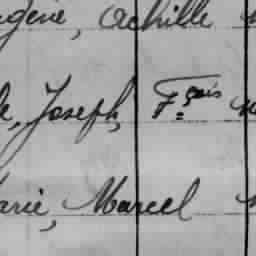 gène, Achille
Joseph, F.çois
arie, Marcel